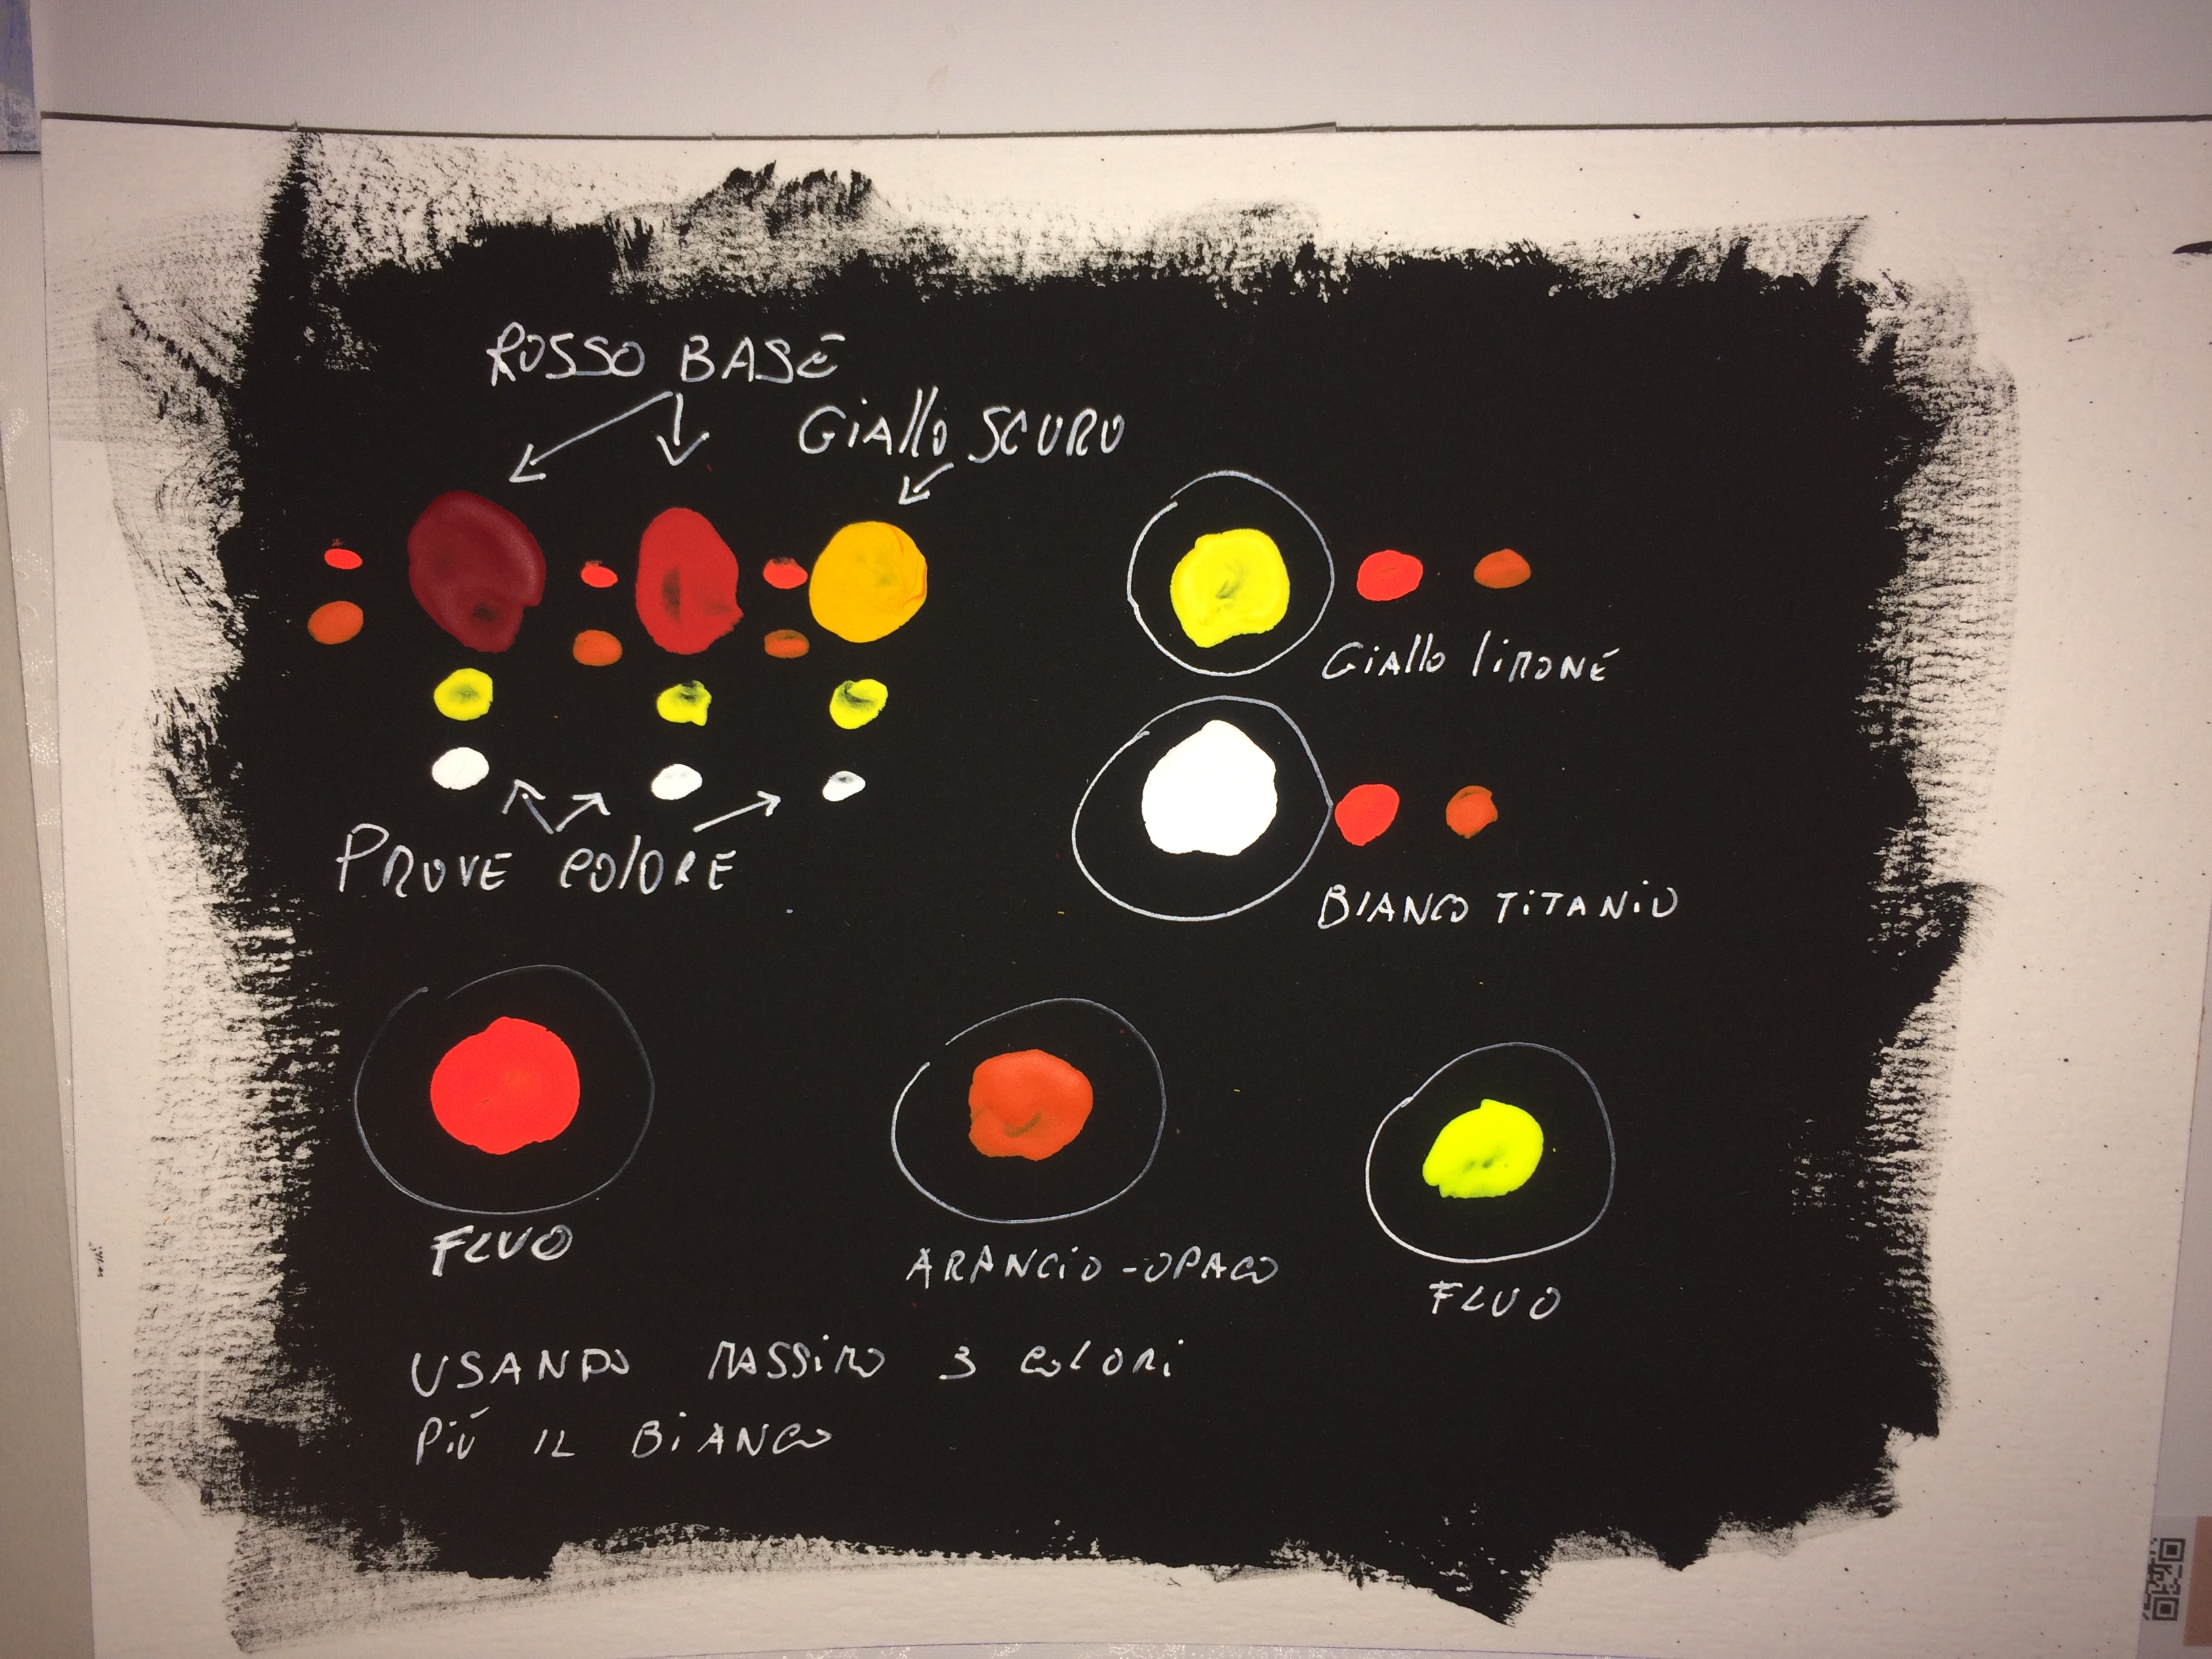 ROSSO BASE
GiAllo SCURO
GiAllo liMONE
PROVE COlORE
BIANCO TiTANiO
FLUO
ARANCiO-OPACO
FLUO
USANDO MASSiMO 3 COLORi
Più IL BiANCO